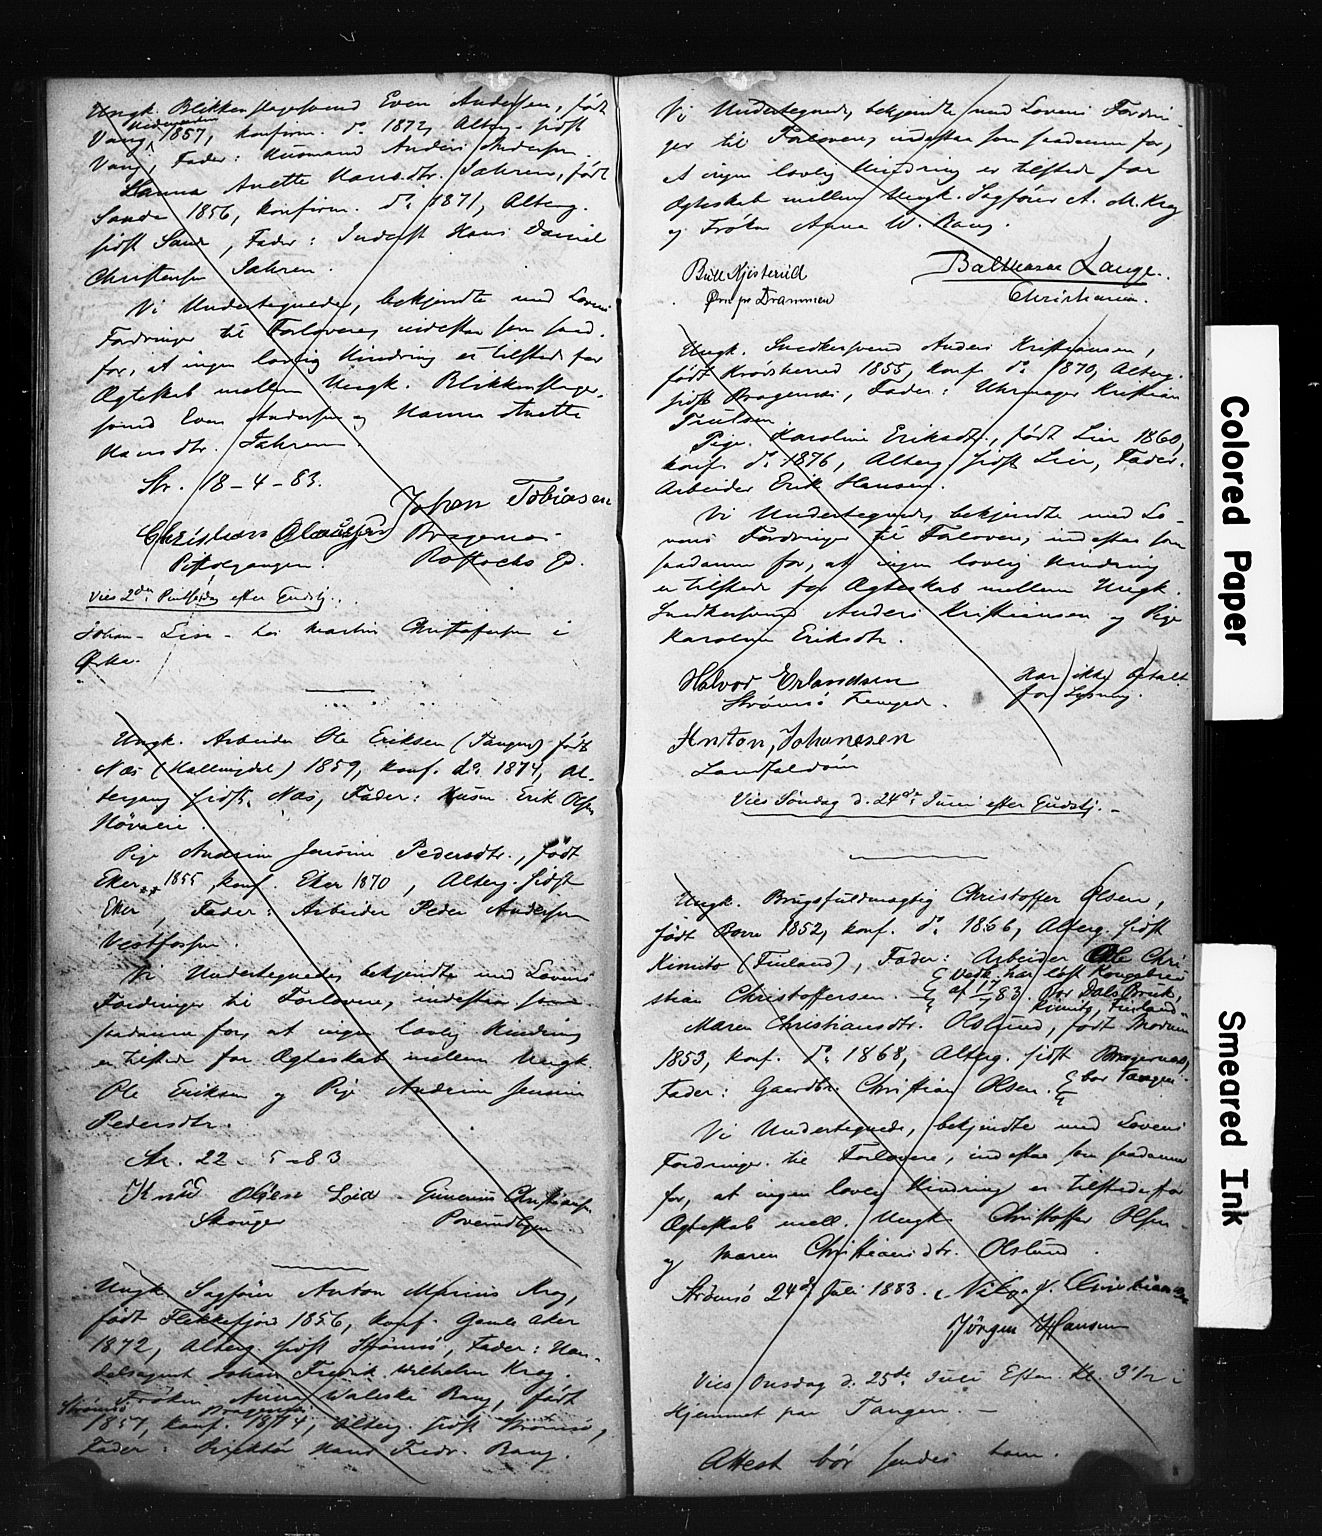 Ungk. Blikkenslagersvend Even Andersen, født
Vang 1857, konfirm. do 1872, Alterg. sidst
Vang, Fader: Husmand Anders Andersen.
Hanna Anette Hansdtr. Jahren, født
Sande 1856, konfirm. do 1871, Alterg.
sidst Sande, Fader: Inderst Hans Daniel
Christensen Jahren.
Vi Undertegnede, bekjendte med Lovens
Fordringer til Forlovere, indestaa som saad.
for, at ingen lovlig Hindring er tilstede for
Ægteskab mellem Ungk. Blikkenslager-
svend Even Andersen og Hanna Anette
Hansdtr. Jahren.
Str. 18-4-83.
Johan Tobiasen
Christian Clausen Bragernes
Vies 2den Pintsedag efter Gudstj.
Johan Lien hos Martin Christofersen i
Ungk. Arbeider Ole Eriksen (Tangen) født
Næs (Hallingdal) 1859, konf. do 1874, Al-
tergang sidst Næs, Fader: Husm. Erik Olsen
Pige Andrine Jensine Pedersdtr., født
Eker 1855, konf. Eker 1870, Alterg. sidst
Eker, Fader: Arbeider Peder Andersen
Vestfossen.
Vi Undertegnede, bekjendte med Lovens
Fordringer til Forlovere, indestaa som
saadanne for, at ingen lovlig Hindring
er tilstede for Ægteskab mellem Ungk.
Ole Eriksen og Pige Andrine Jensine
Pedersdtr.
Str. 22-5-83
Knud Olsen Lia Gunerius Christiansen
Skauger
Ungk. Sagfører Anton Marius Krog,
født Flekkefjord 1856, konf. Gamle Aker
1872, Alterg. sidst Strømsø, Fader: Han-
delsagent Johan Fredrik Wilhelm Krog.
Frøken Anna Waleska Bang, født
Strømsø 1857, konf. Bragernes 1874, Alterg. sidst Strømsø,
Fader: Direktør Hans Fredr. Bang.
Vi Undertegnede, bekjendte med Lovens Fordrin-
ger til Forlovere, indestaa som saadanne for,
at ingen lovlig Hindring er tilstede for
Ægteskab mellem Ungk. Sagfører A. M. Krog
og Frøken Anna W. Bang.
Balthazar Lange.
Christiania.
pr Drammen
Ungk. Snedkersvend Anders Kristiansen,
født Krødsherred 1855, konf. do 1870, Alterg.
sidst Bragernes, Fader: Uhrmager Kristian
Truelsen.
Pige Karoline Eriksdtr., født Lier 1860,
konf. do 1876, Alterg. sidst Lier, Fader:
Arbeider Erik Hansen.
Vi Undertegnede, bekjendte med Lo-
vens Fordringer til Forlovere, indestaa som
saadanne for, at ingen lovlig Hindring
er tilstede for Ægteskab mellem Ungk.
Snedkersvend Anders Kristiansen og Pige
Karoline Eriksdtr.
Halvor Erlandsen
Strømsø
Har ikke betalt
for Lysning.
Anton Johanesen
Landfaldøen
Vies Søndag d. 24de Juni efter Gudstj.
Ungk. Brugsfuldmægtig Christoffer Olsen,
født Borre 1852, konf. do 1866, Alterg. sidst
Kimito (Finland), Fader: Arbeider Ole Chri-
stian Christoffersen. Vedk. har løst Kongebrev
af 83. Bor Dals Bruk,
Kimito, Finland.
Maren Christiansdtr. Olslund, født Modum
1853, konf. do 1868, Alterg. sidst Bragernes,
Fader: Gaardbr. Christian Olsen. bor Tangen.
Vi Undertegnede, bekjendte med Lovens
Fordringer til Forlovere, indestaa som saadanne
for, at ingen lovlig Hindring er tilstede for
Ægteskab mell. Ungk. Christoffer Olsen
og Maren Christiansdtr. Olslund.
Strømsø 24de Juli 1883.
Jørgen Hansen
Vies Onsdag d. 25de Juli Efterm. Kl. 3 1/2 i
Hjemmet paa Tangen.
Attest bør sendes ham.
Colored Paper
Smeared Ink